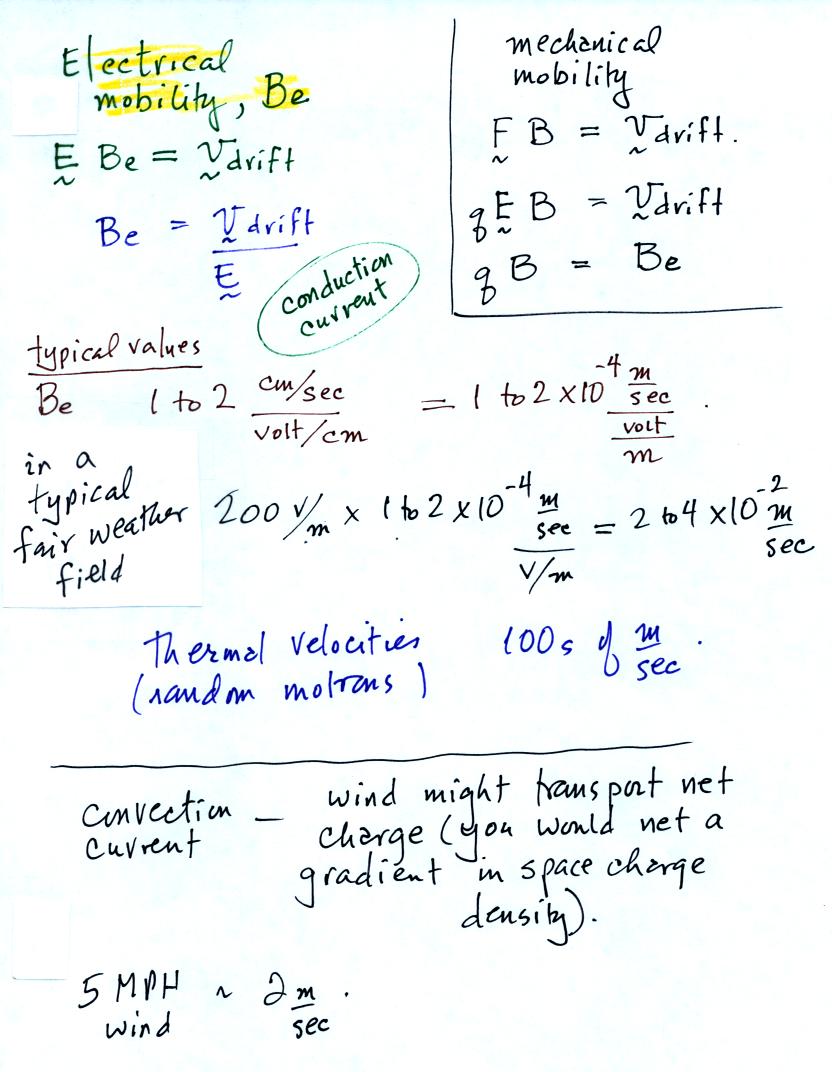 Electrical
mobility, Be
E Be = v drift
Be = v drift / E
conduction
current
mechanical
mobility
F B = v drift.
q E B = v drift
q B = Be
typical values
Be 1 to 2 cm/sec / volt/cm = 1 to 2 x 10^-4 m/sec / volt/m .
in a
typical
fair weather
field
200 V/m x 1 to 2 x 10^-4 m/sec / V/m = 2 to 4 x 10^-2 m/sec
Thermal velocities 100s of m/sec .
(random motions)
convection – wind might transport net
current charge (you would net a
gradient in space charge
density).
5 MPH ~ 2 m/sec .
wind